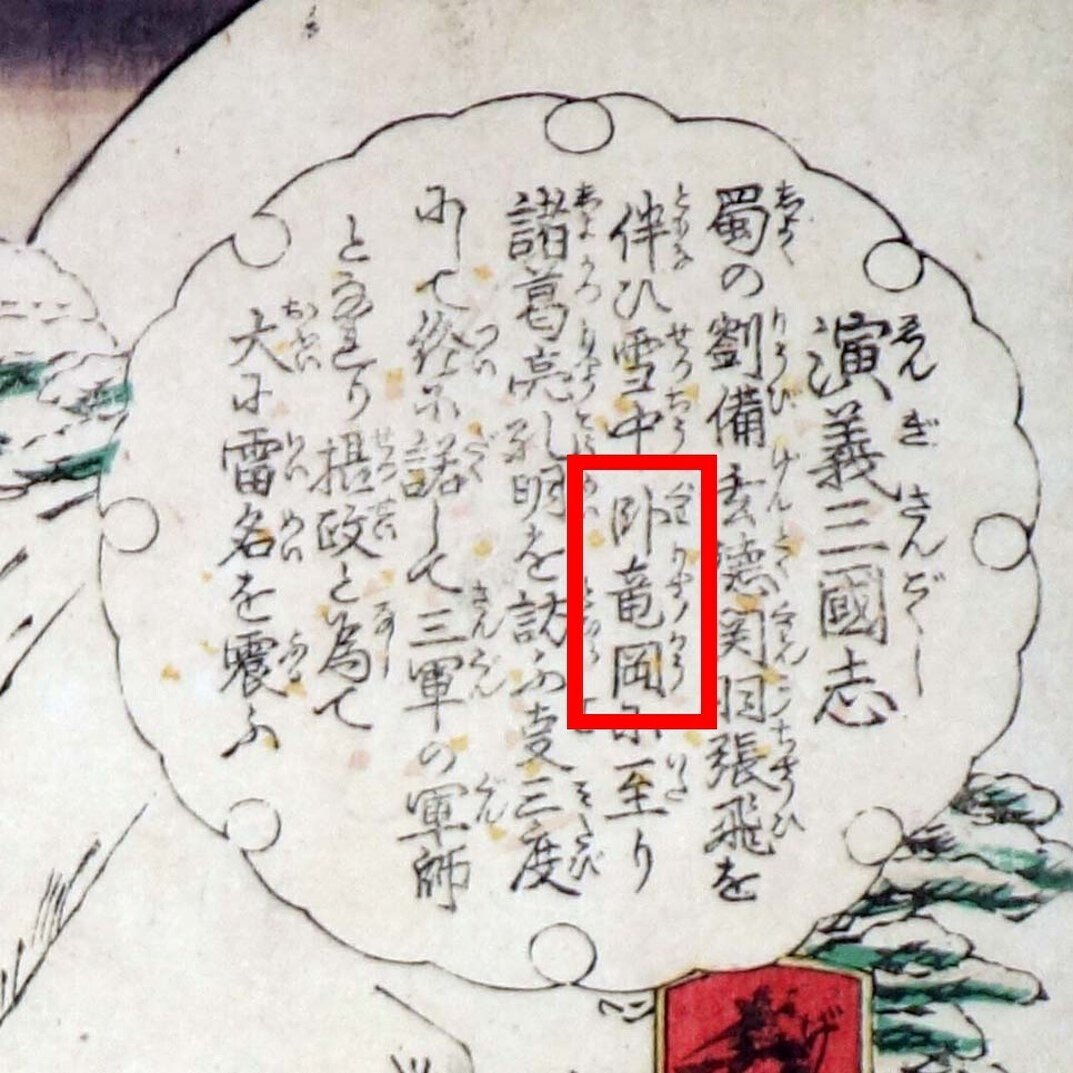 演義三國志
蜀の劉備玄德関羽張飛を
伴ひ雪中卧竜岡に至り
諸葛亮孔明を訪ふ事三度
にして終に諾して三軍の軍師
となれり摂政と為て
大に雷名を震ふ